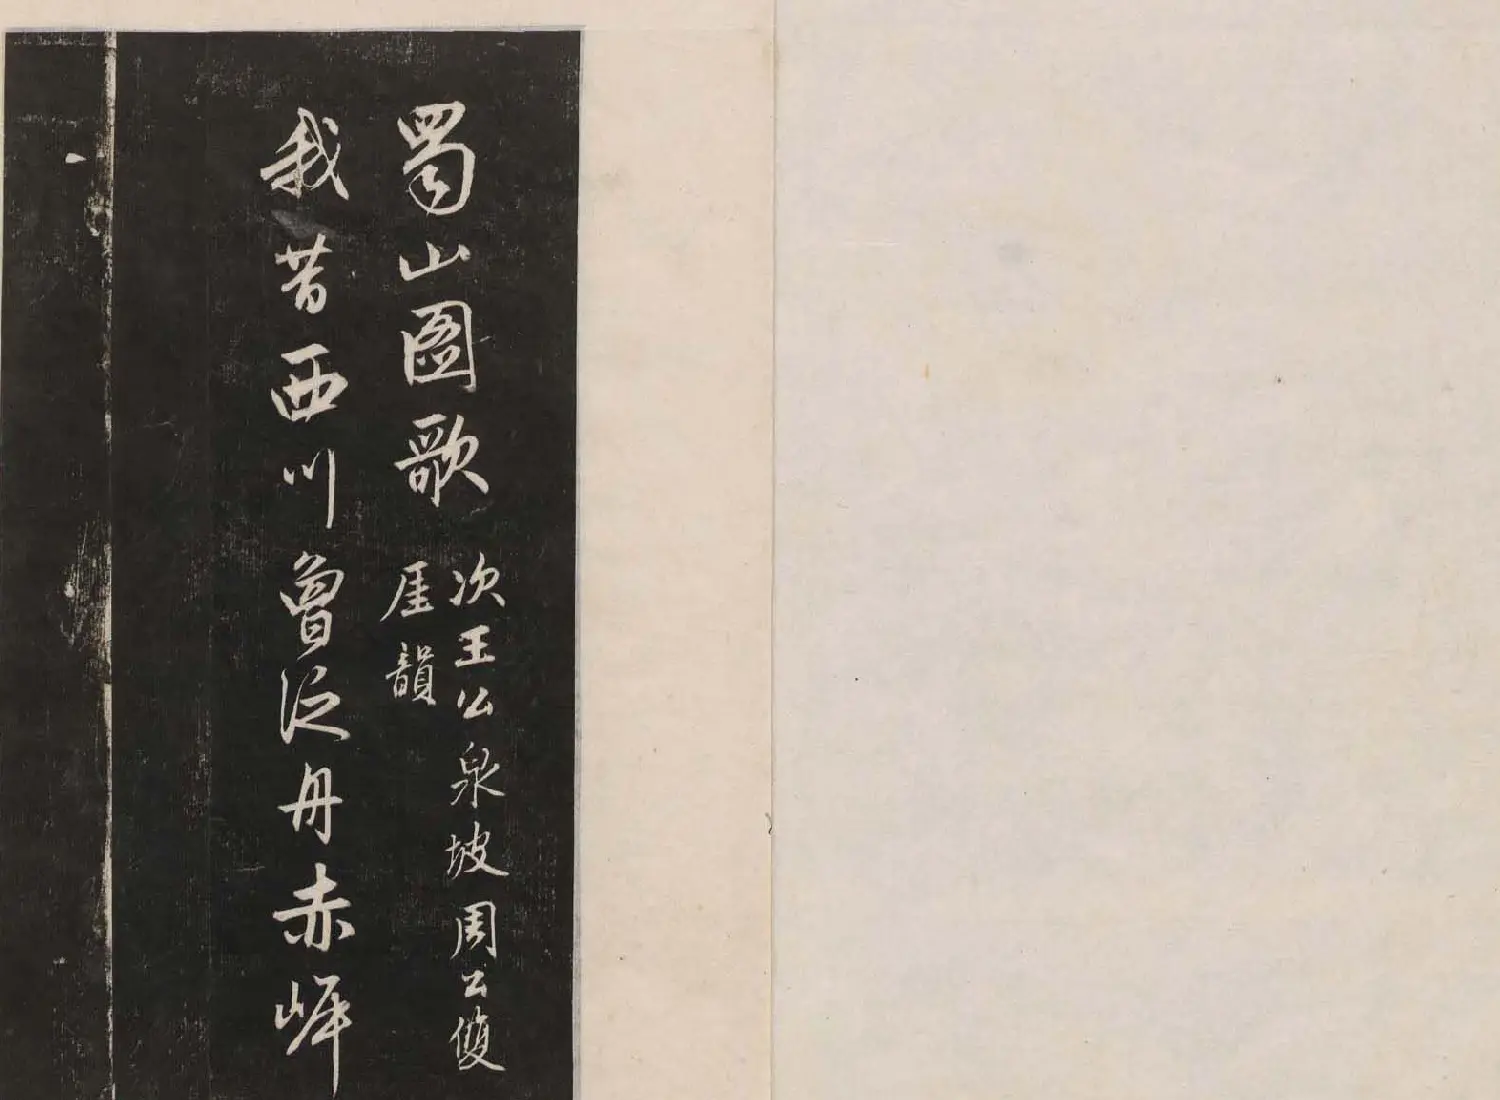 蜀山圖歌
次王公泉坡周公雙
厓韻
我昔西川曾泛舟赤岸